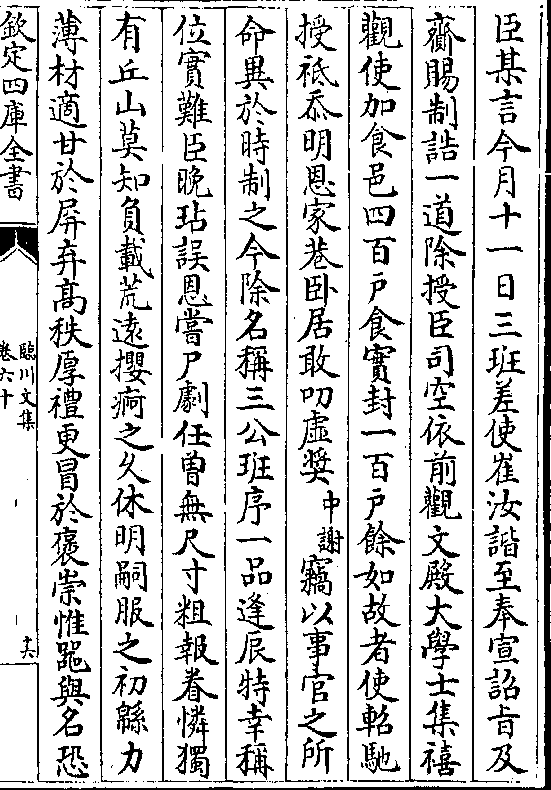 臣某言今月十一日三班差使崔汝諧至奉宣詔旨及
齎賜制誥一道除授臣司空依前觀文殿大學士集禧
觀使加食邑四百户食實封一百户餘如故者使軺馳
授祗忝明恩家巷卧居敢叨虚奬中謝竊以事官之所
命異於時制之今除名稱三公班序一品逢辰特幸稱
位實難臣晚玷誤恩嘗尸劇任曾無尺寸粗報眷憐獨
有丘山莫知負載荒遠攖痾之久休明嗣服之初緜力
薄材適甘於屏弃髙秩厚禮更冒於褒崇惟器與名恐
欽定四庫全書
臨川文集
卷六十
十六